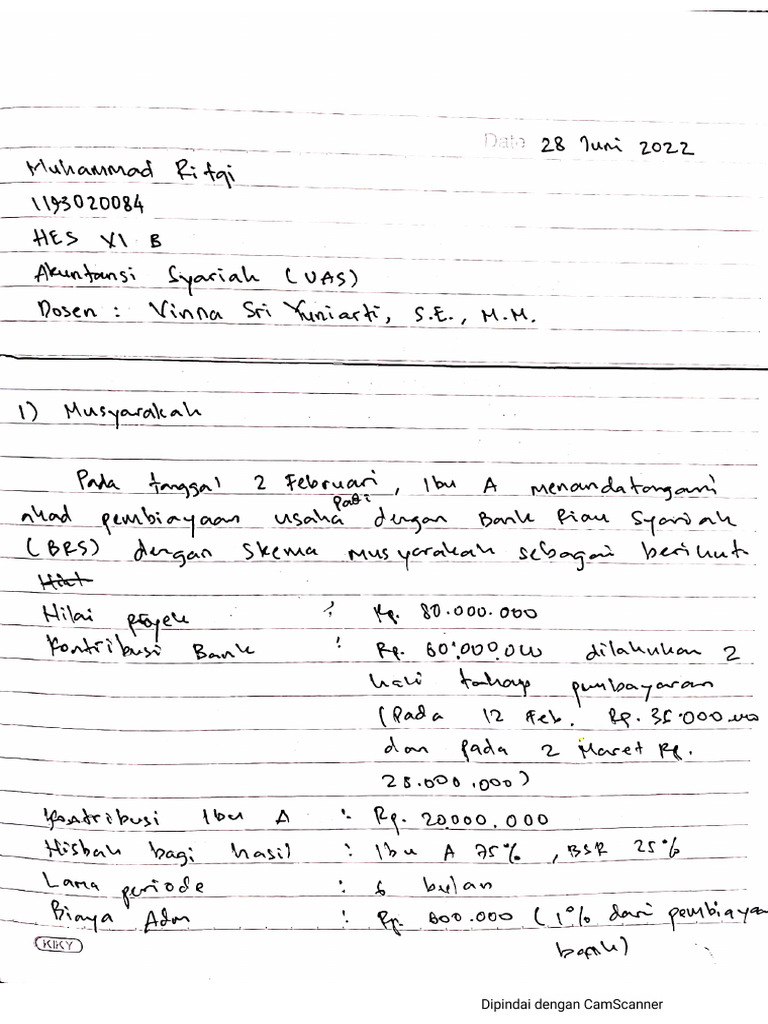 Date 28 Juni 2022
Muhammad Rifqi
1193020084
HES VI B
Akuntansi Syariah (UAS)
Dosen : Vinna Sri Yuniarti, S.E., M.M.
1) Musyarakah
Pada tanggal 2 Februari, Ibu A menandatangani
akad pembiayaan usaha padi dengan Bank Riau Syariah
(BRS) dengan skema musyarakah sebagai berikut
Nilai proyek : Rp. 80.000.000
Kontribusi Bank : Rp. 60.000.000 dilakukan 2
kali tahap pembayaran
(Pada 12 Feb. Rp. 35.000.000
dan pada 2 Maret Rp.
25.000.000)
Kontribusi Ibu A : Rp. 20.000.000
Nisbah bagi hasil : Ibu A 75% , BSR 25%
Lama periode : 6 bulan
Biaya Adm : Rp. 600.000 (1% dari pembiayaan
bank)
KIKY
Dipindai dengan CamScanner